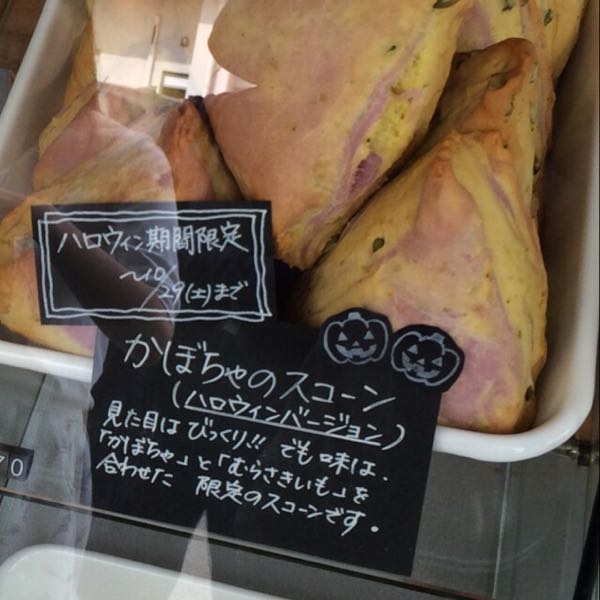 ハロウィン期間限定
～10/29(土)まで
かぼちゃのスコーン
(ハロウィンバージョン)
見た目はびっくり!! でも味は、
「かぼちゃ」と「むらさきいも」を
合わせた 限定のスコーンです。
70